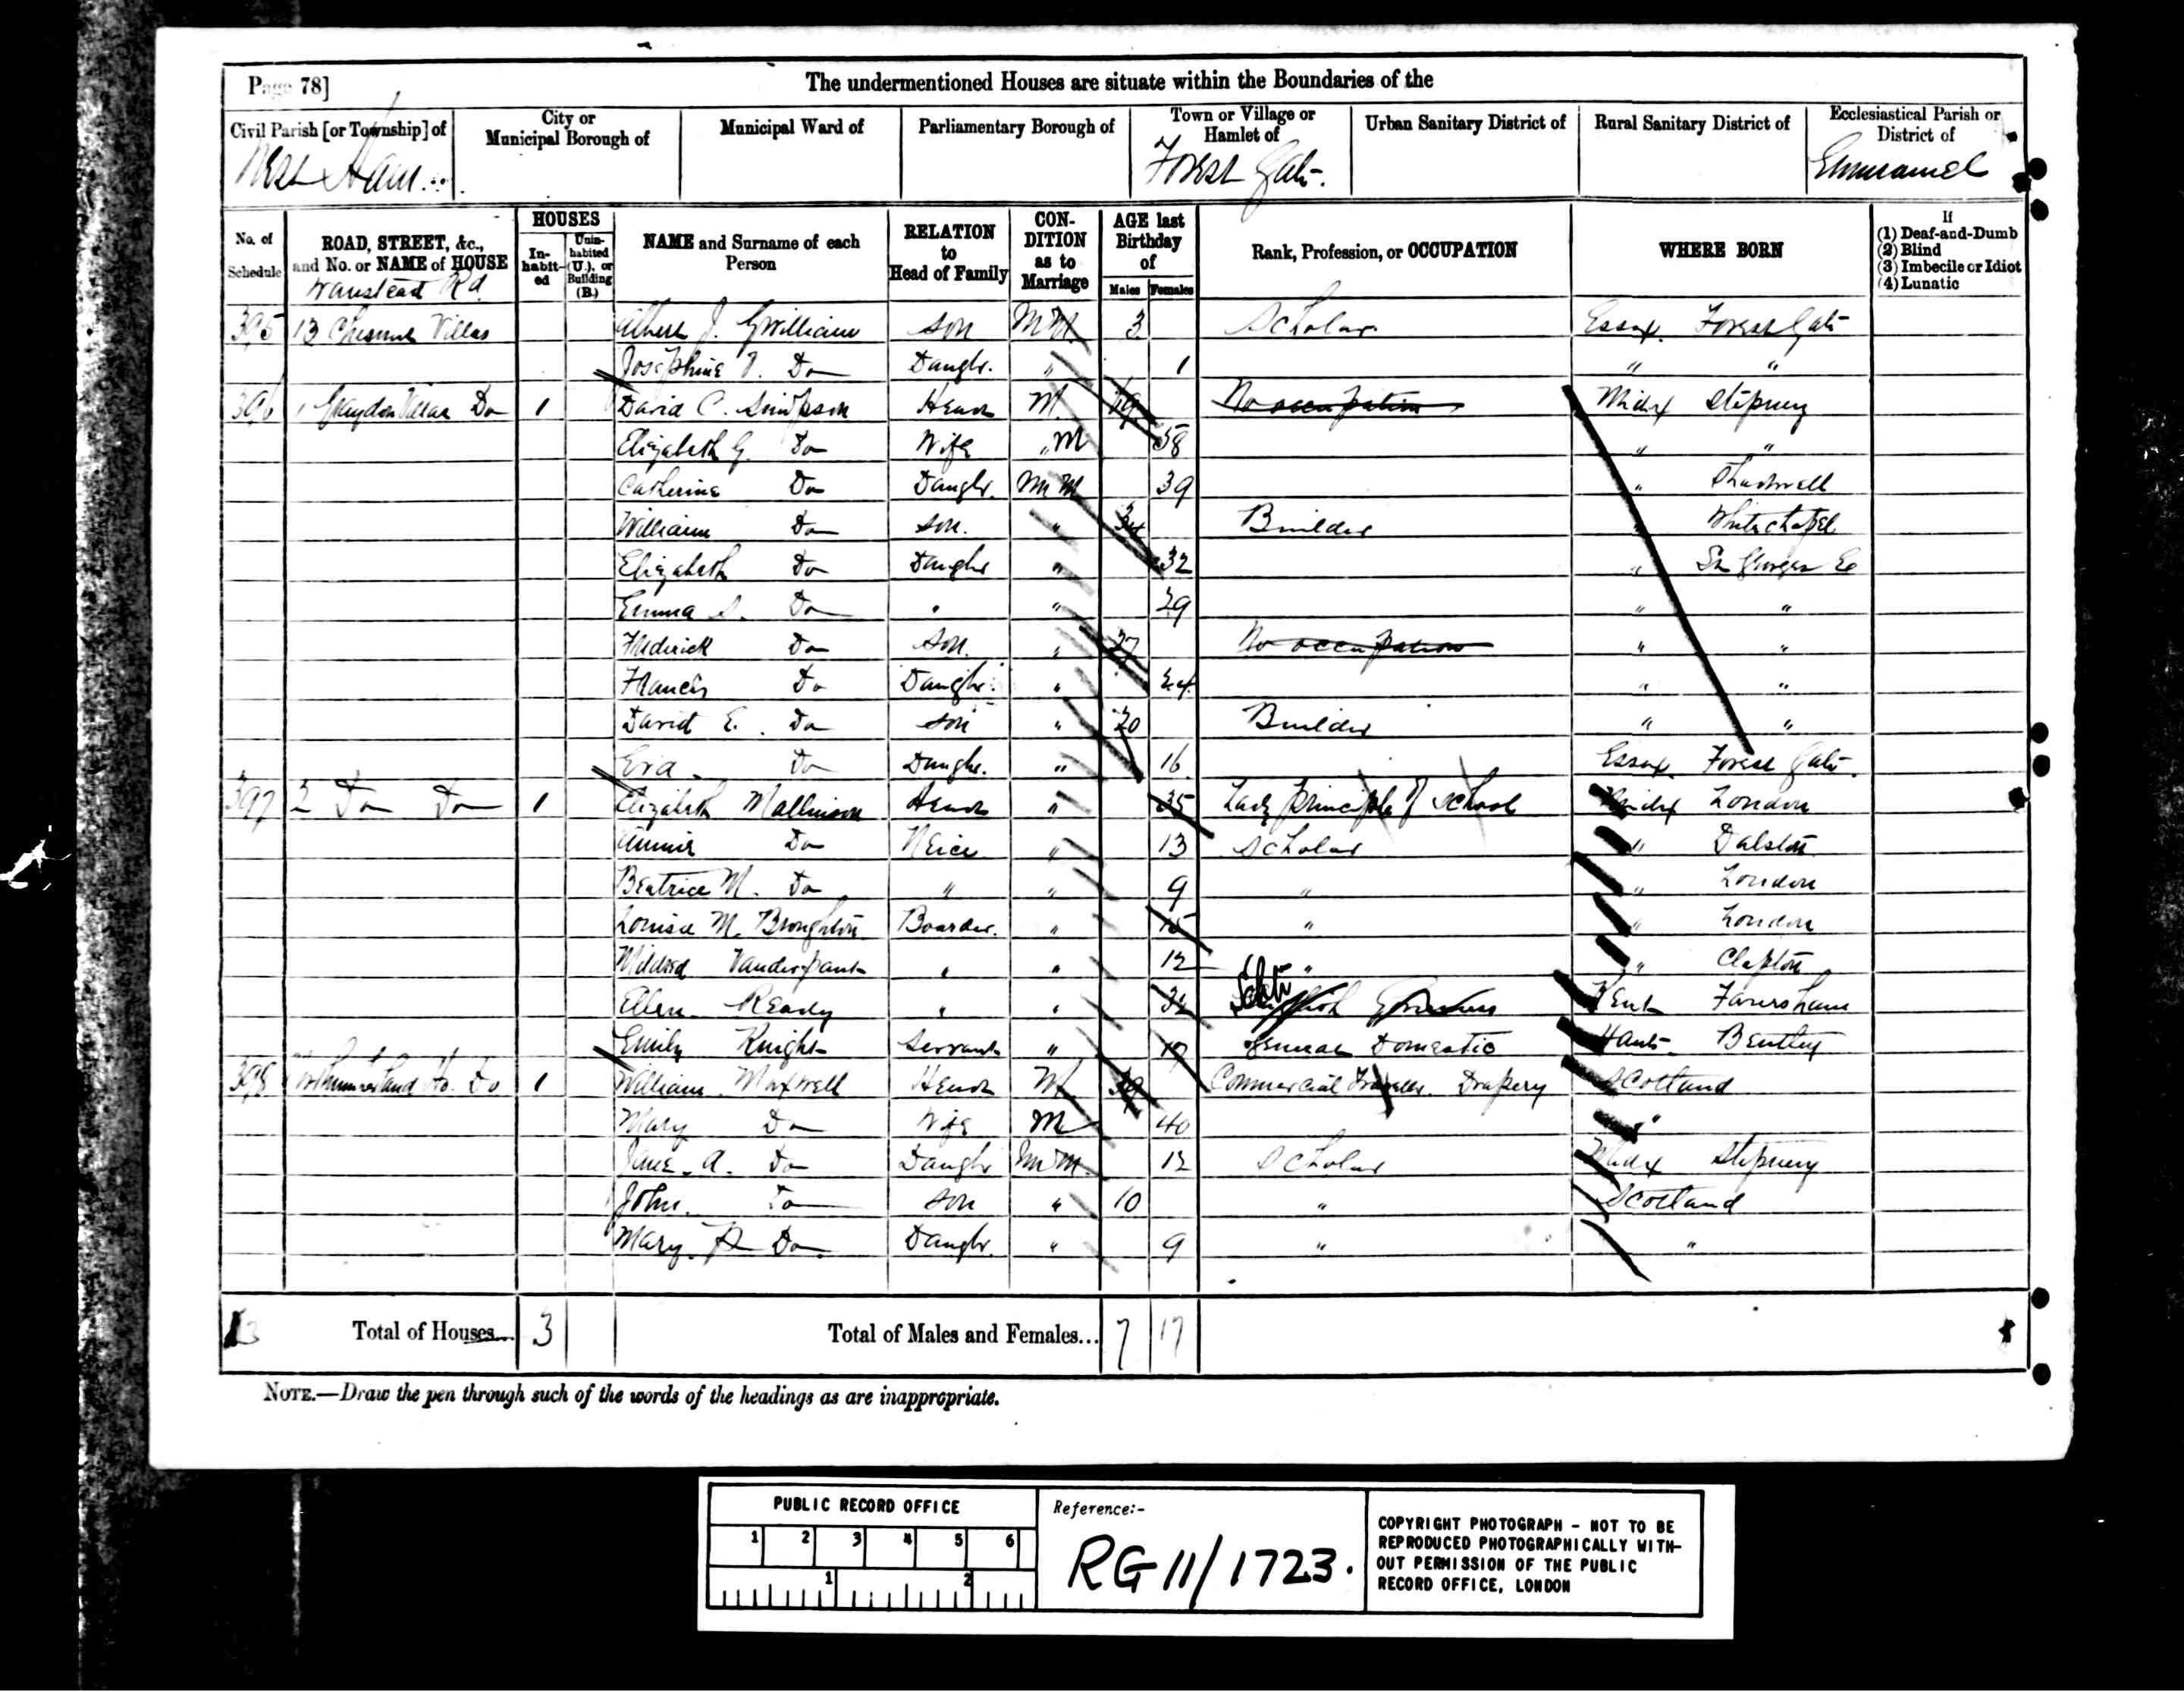 Page 78] The undermentioned Houses are situate within the Boundaries of the
Civil Parish [or Township] of City or Municipal Borough of Municipal Ward of Parliamentary Borough of Town or Village or Hamlet of Urban Sanitary District of Rural Sanitary District of Ecclesiastical Parish or District of
West Ham Forest Gate Emmanuel
No. of Schedule ROAD, STREET, &c., and No. or NAME of HOUSE HOUSES Inhabited Uninhabited (U.), or Building (B.) NAME and Surname of each Person RELATION to Head of Family CONDITION as to Marriage AGE last Birthday of Males Females Rank, Profession, or OCCUPATION WHERE BORN If (1) Deaf-and-Dumb (2) Blind (3) Imbecile or Idiot (4) Lunatic
Wanstead Rd
395 13 Chesnut Villas Albert J. Gwilliam Son 3 Scholar Essex Forest Gate
Josephine V. Do Daughr. " 1 " "
396 1 Villas Do 1 David C. Simpson Head M 59 No occupation Midx Stepney
Elizabeth G. Do Wife " M 58 " "
Catherine Do Daughr. 39 " Shadwell
William Do Son. " 34 Builder " Whitechapel
Elizabeth Do Daughr " 32 " St Georges E
Emma S. Do " " 29 " "
Frederick Do Son. " 27 No occupation " "
Francis Do Daughr. " 24 " "
David E. Do Son " 20 Builder " "
Eva Do Daughr. " 16 Essex Forest Gate
397 2 Do Do 1 Elizabeth Mallinson Head " 35 Lady Principle of School Midx London
Annie Do Neice " 13 Scholar " Dalston
Beatrice M. Do " " 9 " " London
Louisa M. Broughton Boarder. " 15 " " London
Mildred Vanderpant " " 12 " " Clapton
Ellen Ready " " 32 Governess Kent Faversham
Emily Knight Servant " 19 General Domestic Hants Bentley
398 Northumberland Ho. Do 1 William Maxwell Head M 39 Commercial Traveller Drapery Scotland
Mary Do Wife M 40 "
Jane A. Do Daughr 12 Scholar Midx Stepney
John Do Son " 10 " Scotland
Mary Do Daughr. " 9 " "
Total of Houses... 3 Total of Males and Females... 7 17
NOTE.—Draw the pen through such of the words of the headings as are inappropriate.
PUBLIC RECORD OFFICE
1 2 3 4 5 6
1 2
Reference:-
RG 11/1723.
COPYRIGHT PHOTOGRAPH - NOT TO BE
REPRODUCED PHOTOGRAPHICALLY WITH-
OUT PERMISSION OF THE PUBLIC
RECORD OFFICE, LONDON